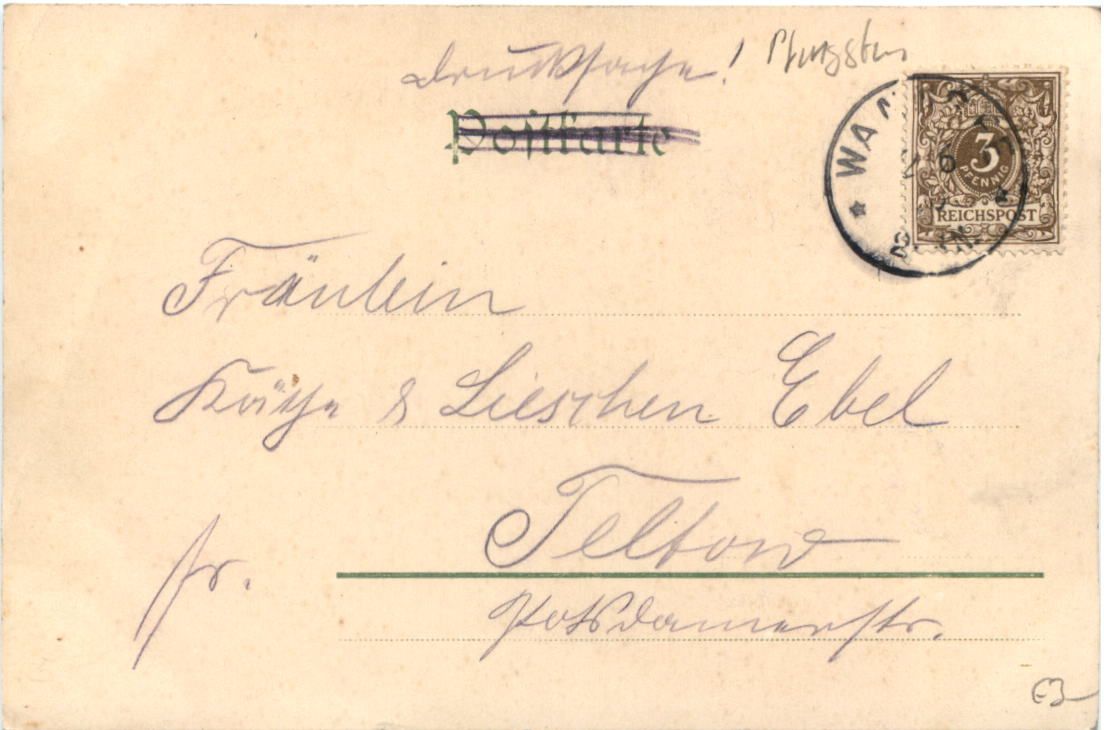 Drucksache! Pfingsten
Postkarte
WAN
6
3
PFENNIG
REICHSPOST
Fräulein
Käthe & Lieschen Ebel
Teltow
fr.
Potsdamerstr.